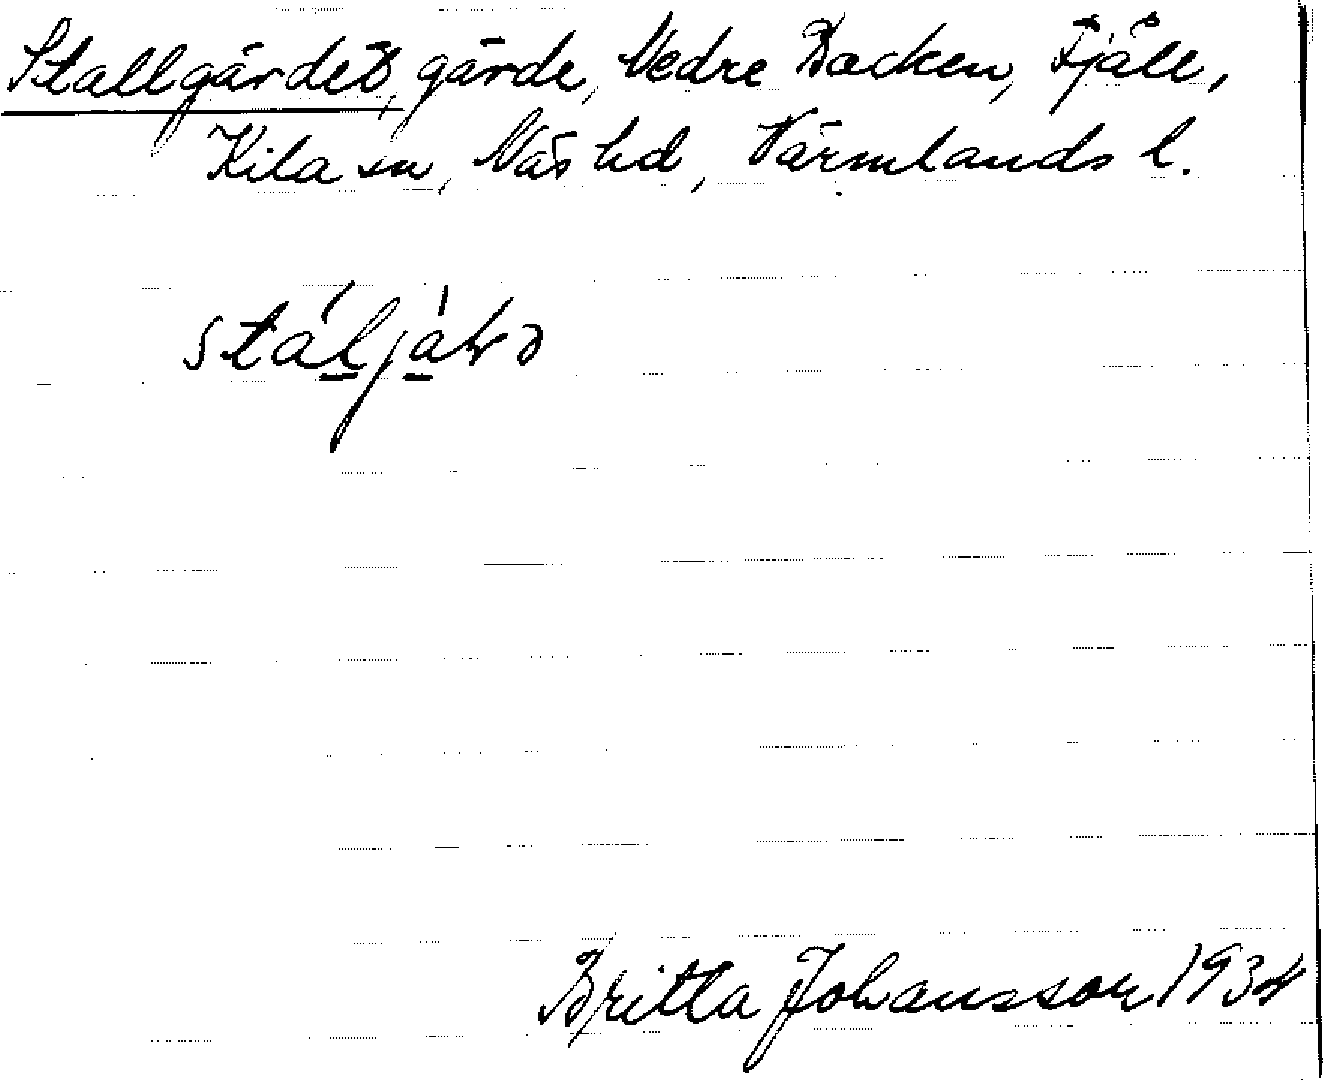 Stallgärdet, gärde, Nedre Backen, Fjäll,
Kila sn, Näs hd, Värmlands l.
Britta Johansson 1934